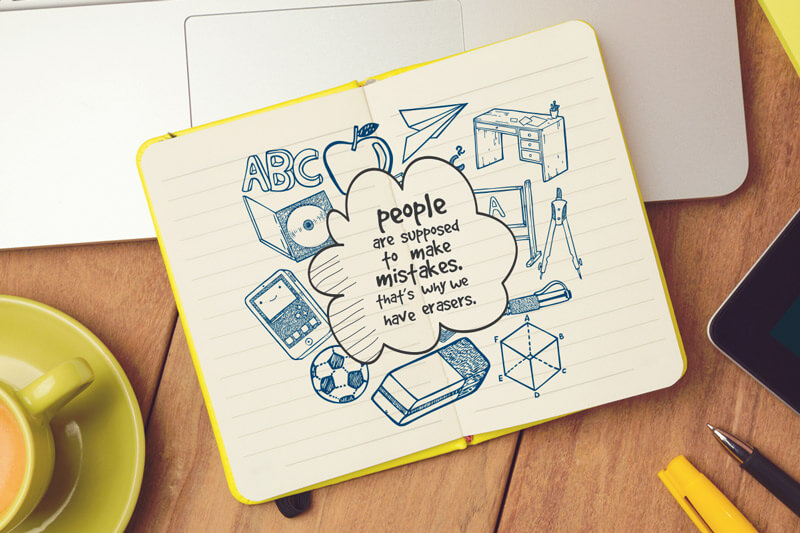 ABC
C²
people
are supposed
to make
mistakes.
that's why we
have erasers.
A
A
B
C
D
E
F